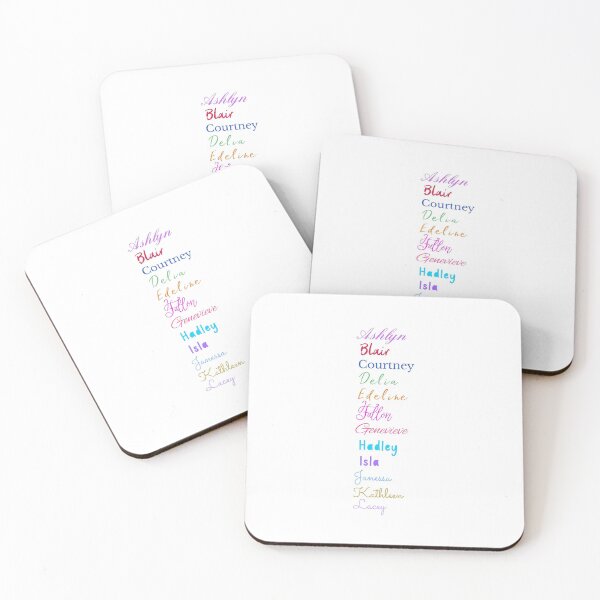 Ashlyn
Blair
Courtney
Delia
Edeline
Ashlyn
Blair
Courtney
Delia
Edeline
Fallon
Genevieve
Hadley
Isla
Ashlyn
Blair
Courtney
Delia
Edeline
Fallon
Genevieve
Hadley
Isla
Janessa
Kathleen
Lacey
Ashlyn
Blair
Courtney
Delia
Edeline
Fallon
Genevieve
Hadley
Isla
Janessa
Kathleen
Lacey